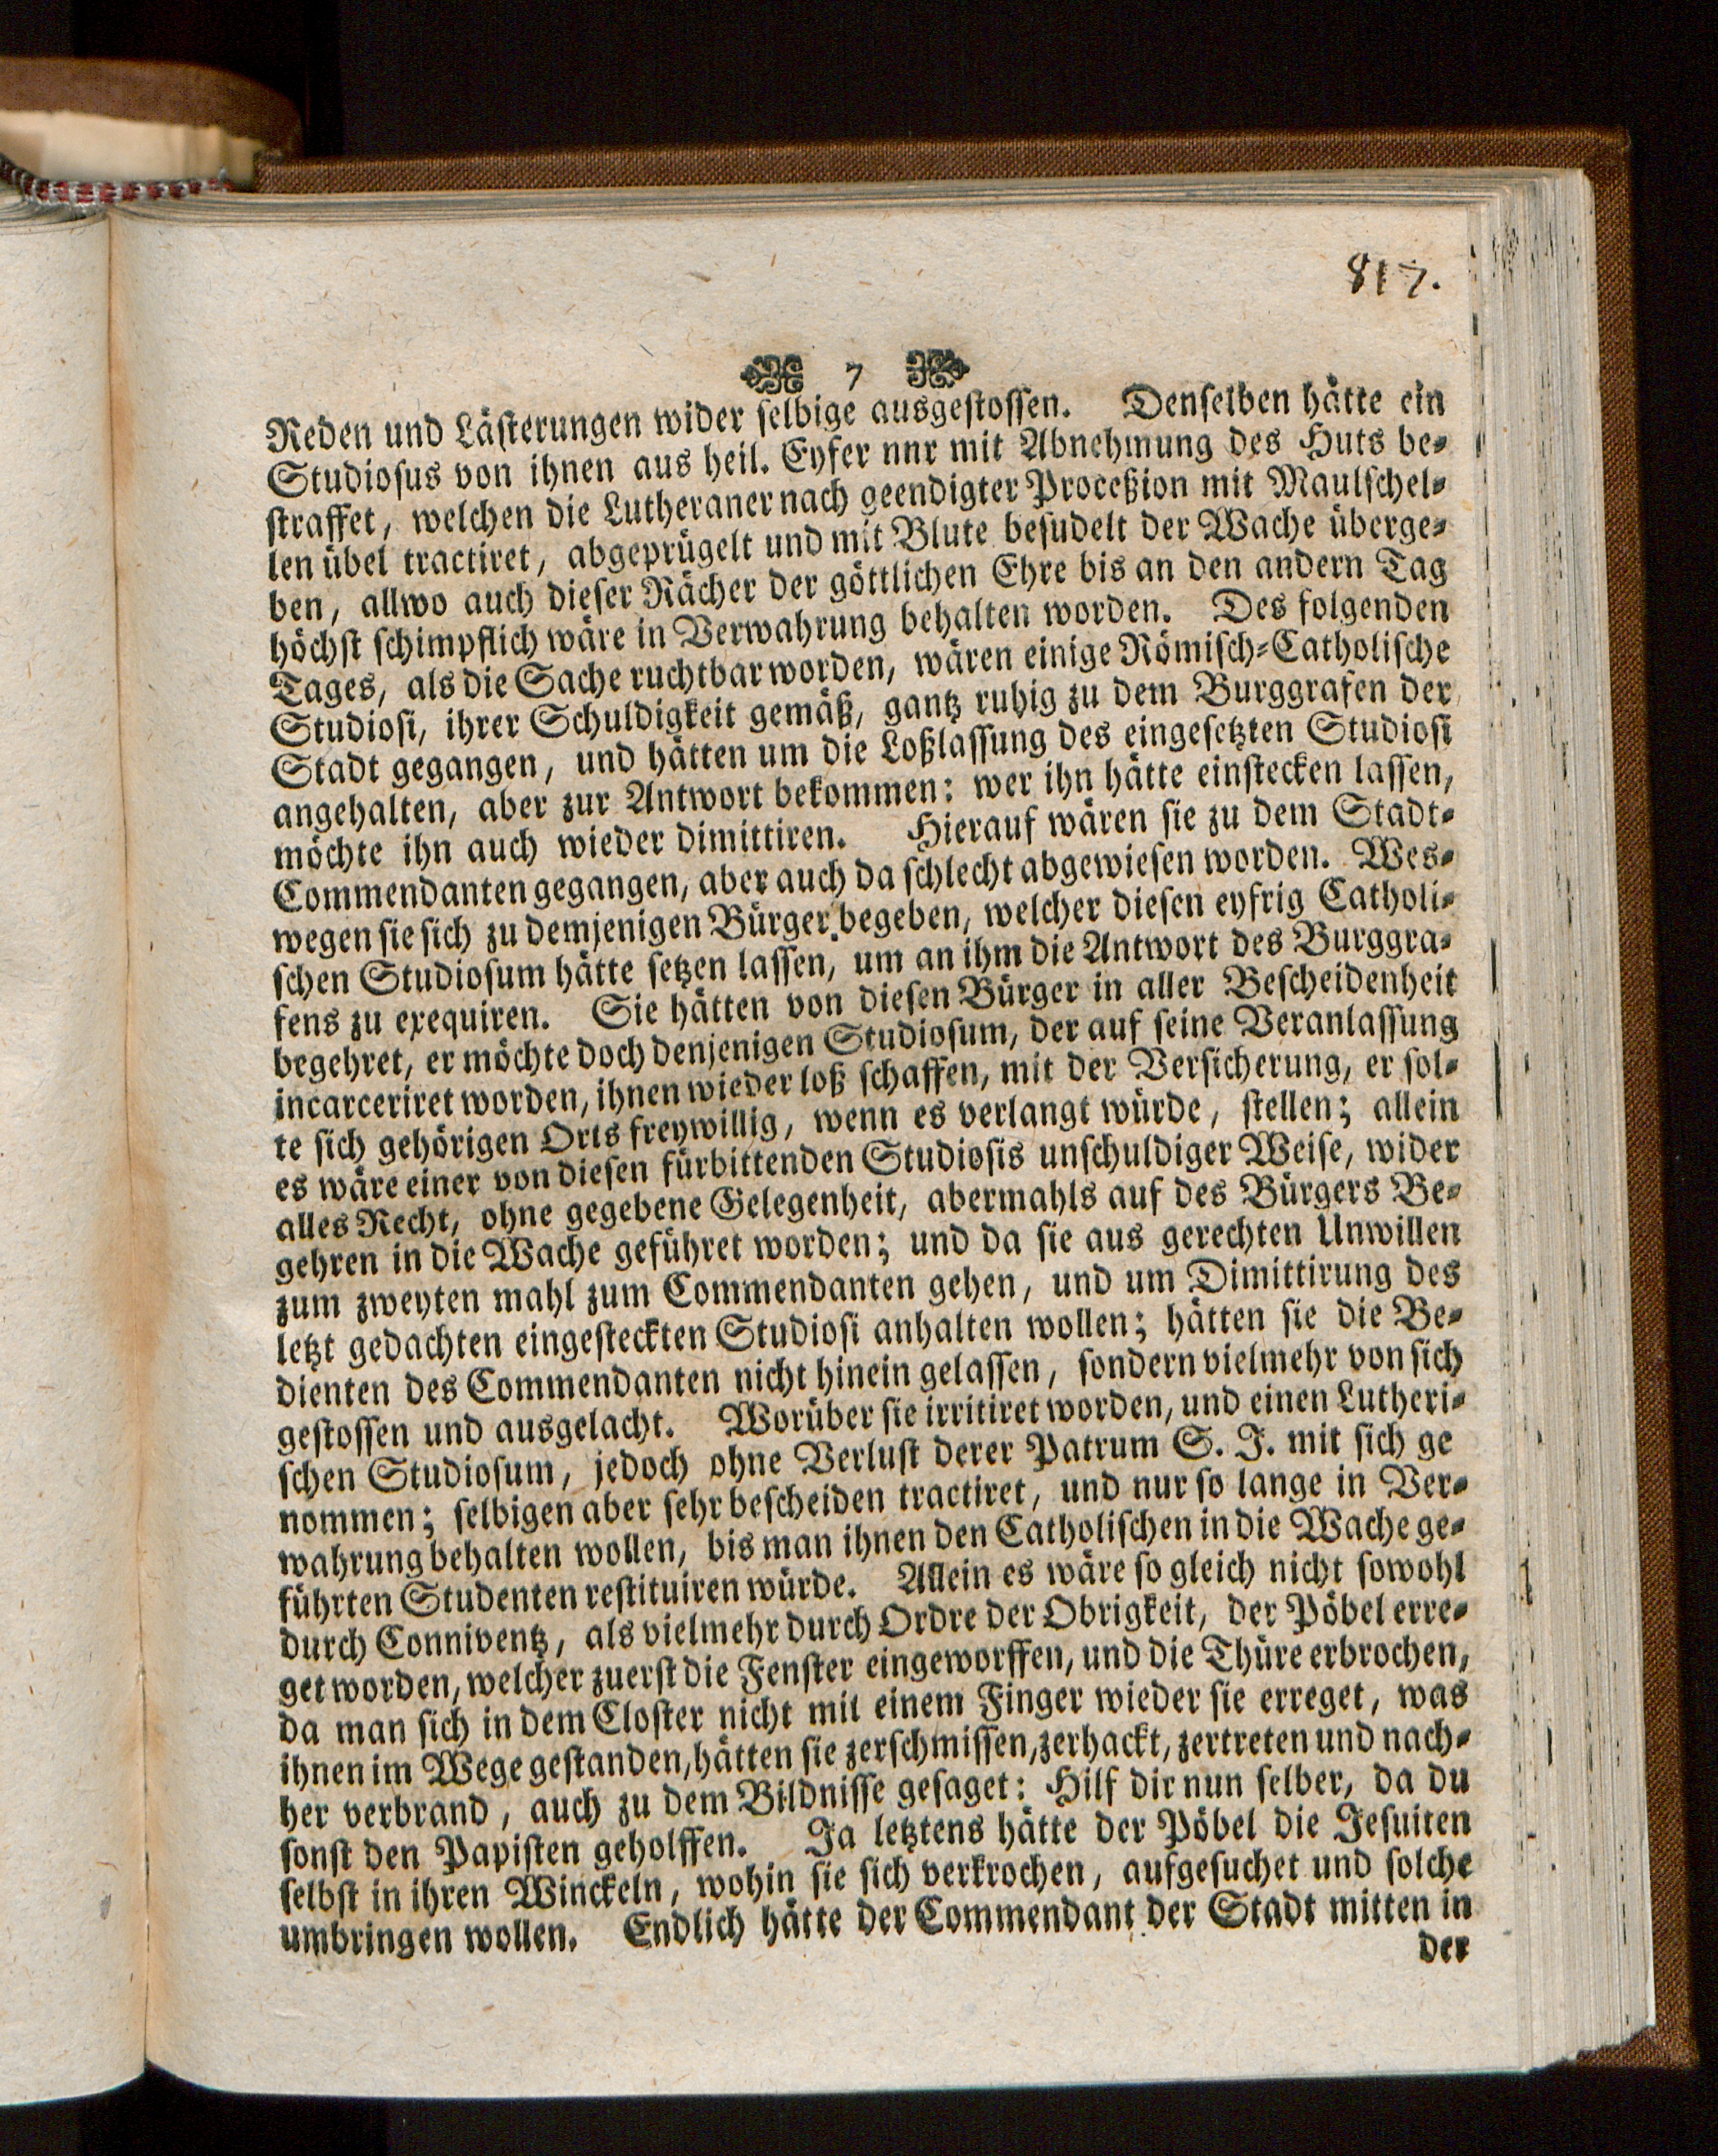 817.
7
Reden und Lästerungen wider selbige ausgestossen. Denselben hätte ein
Studiosus von ihnen aus heil. Eyfer nnr mit Abnehmung des Huts be-
straffet, welchen die Lutheraner nach geendigter Proceßion mit Maulschel-
len übel tractiret, abgeprügelt und mit Blute besudelt der Wache überge-
ben, allwo auch dieser Rächer der göttlichen Ehre bis an den andern Tag
höchst schimpflich wäre in Verwahrung behalten worden. Des folgenden
Tages, als die Sache ruchtbar worden, wären einige Römisch-Catholische
Studiosi, ihrer Schuldigkeit gemäß, gantz ruhig zu dem Burggrafen der
Stadt gegangen, und hätten um die Loßlassung des eingesetzten Studiosi
angehalten, aber zur Antwort bekommen: wer ihn hätte einstecken lassen,
möchte ihn auch wieder dimittiren. Hierauf wären sie zu dem Stadt-
Commendanten gegangen, aber auch da schlecht abgewiesen worden. Wes-
wegen sie sich zu demjenigen Bürger begeben, welcher diesen eyfrig Catholi-
schen Studiosum hätte setzen lassen, um an ihm die Antwort des Burggra-
fens zu exequiren. Sie hätten von diesen Bürger in aller Bescheidenheit
begehret, er möchte doch denjenigen Studiosum, der auf seine Veranlassung
incarceriret worden, ihnen wieder loß schaffen, mit der Versicherung, er sol-
te sich gehörigen Orts freywillig, wenn es verlangt würde, stellen; allein
es wäre einer von diesen fürbittenden Studiosis unschuldiger Weise, wider
alles Recht, ohne gegebene Gelegenheit, abermahls auf des Bürgers Be-
gehren in die Wache geführet worden; und da sie aus gerechten Unwillen
zum zweyten mahl zum Commendanten gehen, und um Dimittirung des
letzt gedachten eingesteckten Studiosi anhalten wollen; hätten sie die Be-
dienten des Commendanten nicht hinein gelassen, sondern vielmehr von sich
gestossen und ausgelacht. Worüber sie irritiret worden, und einen Lutheri-
schen Studiosum, jedoch ohne Verlust derer Patrum S. J. mit sich ge
nommen; selbigen aber sehr bescheiden tractiret, und nur so lange in Ver-
wahrung behalten wollen, bis man ihnen den Catholischen in die Wache ge-
führten Studenten restituiren würde. Allein es wäre so gleich nicht sowohl
durch Conniventz, als vielmehr durch Ordre der Obrigkeit, der Pöbel erre-
get worden, welcher zuerst die Fenster eingeworffen, und die Thüre erbrochen,
da man sich in dem Closter nicht mit einem Finger wieder sie erreget, was
ihnen im Wege gestanden, hätten sie zerschmissen, zerhackt, zertreten und nach-
her verbrand, auch zu dem Bildnisse gesaget: Hilf dir nun selber, da du
sonst den Papisten geholffen. Ja letztens hätte der Pöbel die Jesuiten
selbst in ihren Winckeln, wohin sie sich verkrochen, aufgesuchet und solche
umbringen wollen. Endlich hätte der Commendant der Stadt mitten in
der